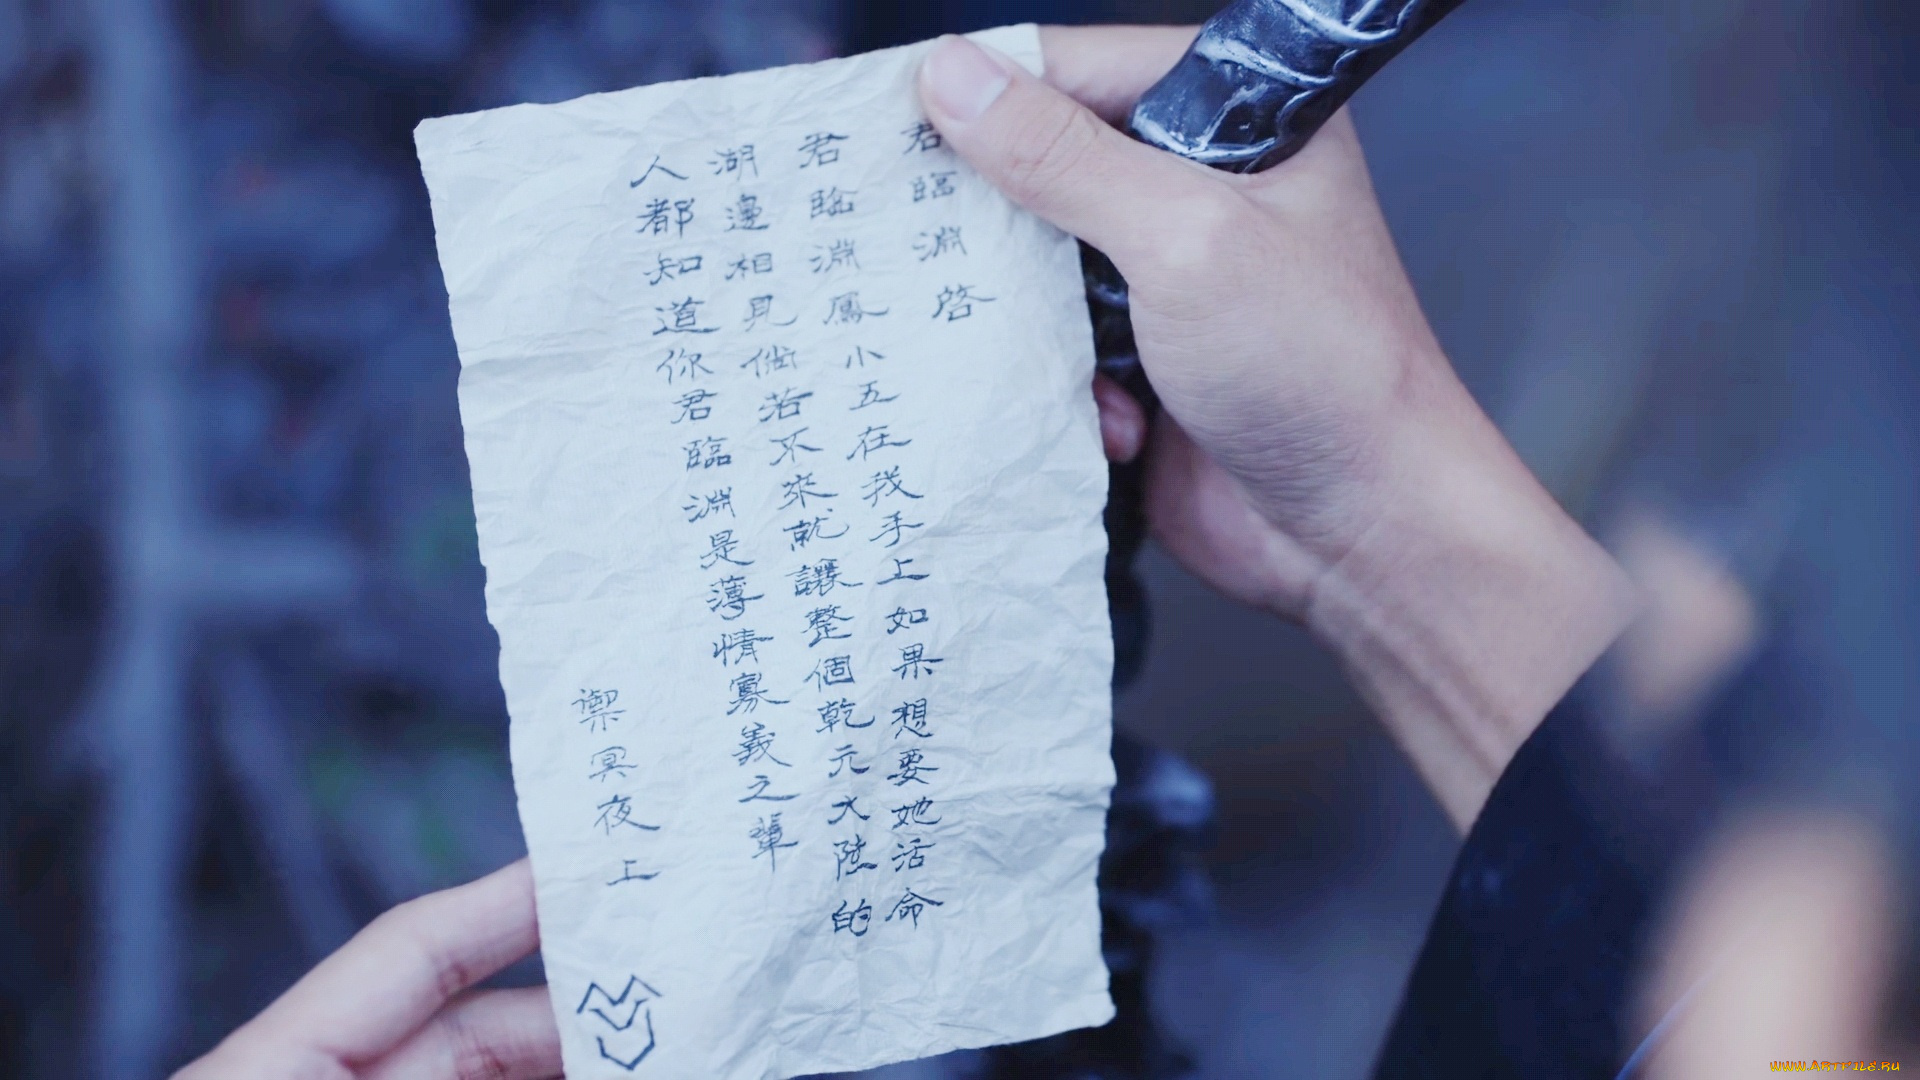 君臨淵啓
君臨淵鳳小五在我手上如果想要她活命
湖邊相見倘若不來就讓整個乾元大陸的
人都知道你君臨淵是薄情寡義之輩
禦冥夜上
www.ArtFile.ru